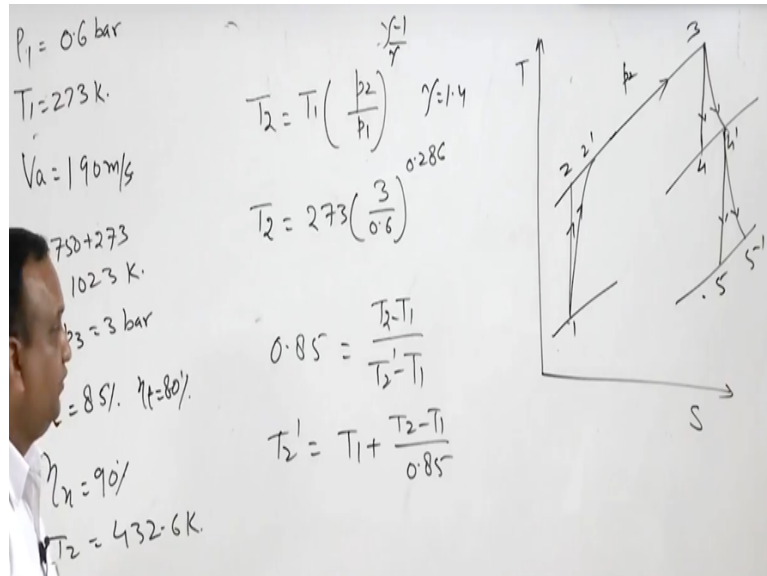 P₁ = 0.6 bar
T₁ = 273 K.
Va = 190 m/s
750+273
1023 K.
p₃ = 3 bar
= 85%. ηt = 80%.
ηn = 90%
T₂ = 432.6 K.
T₂ = T₁ (p₂/p₁)^(γ-1/γ) γ = 1.4
T₂ = 273 (3/0.6)^0.286
0.85 = (T₂-T₁)/(T₂'-T₁)
T₂' = T₁ + (T₂-T₁)/0.85
T
S
p₂
1
2
2'
3
4
4'
5
5'